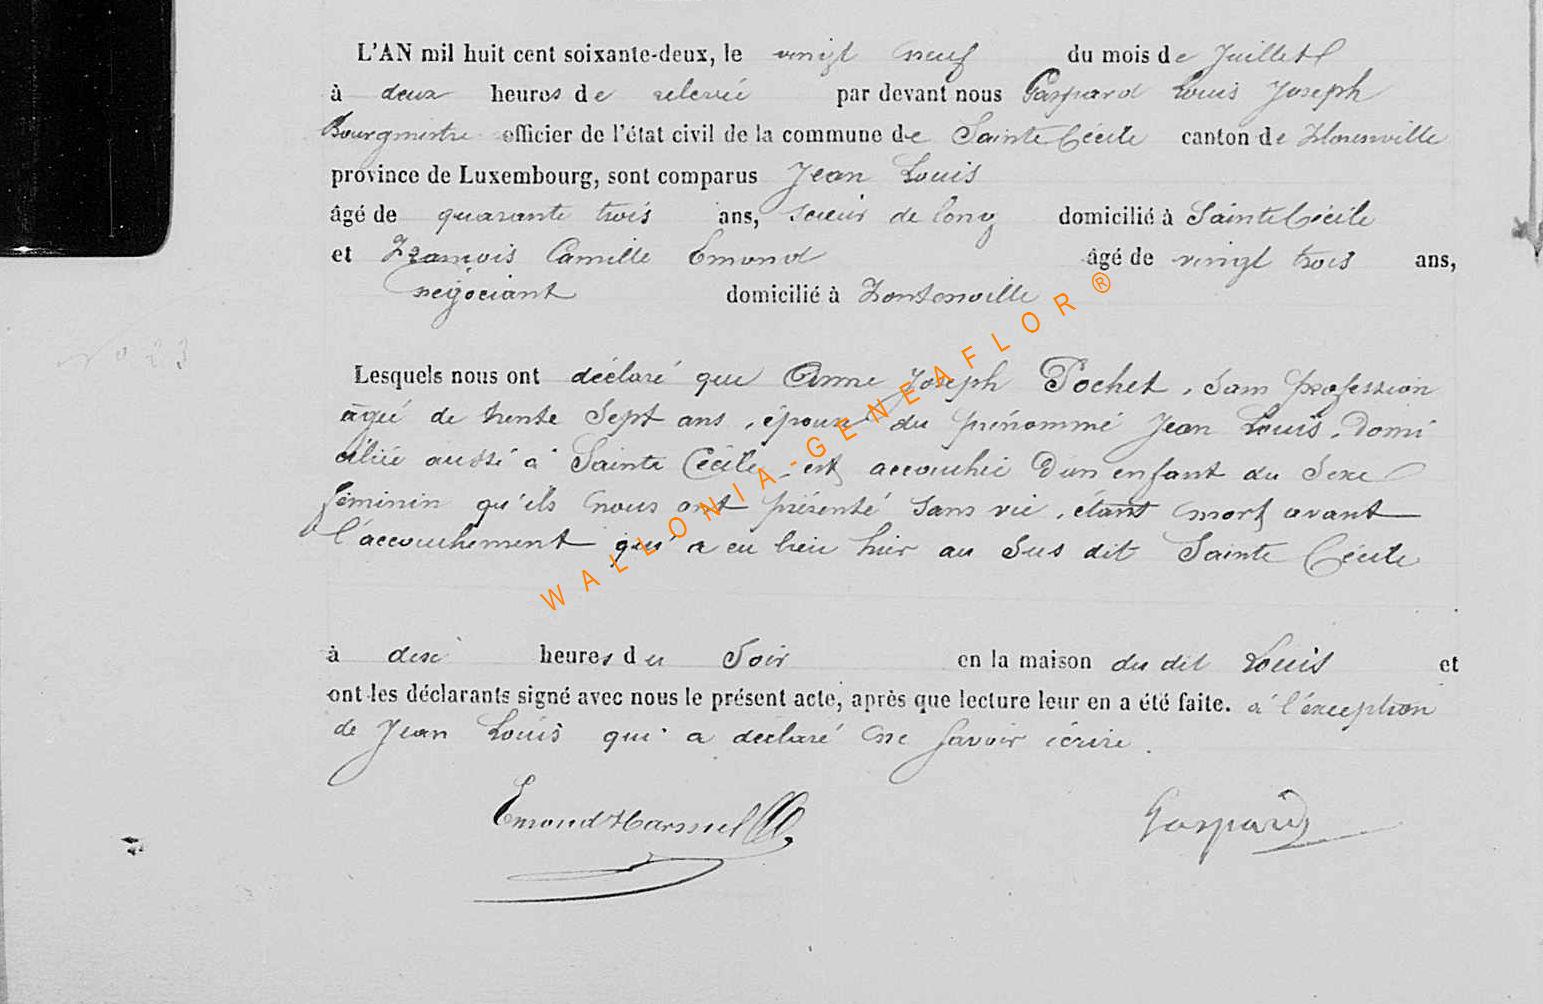 L'AN mil huit cent soixante-deux, le vingt neuf du mois de Juillet
à deux heures de relevée par devant nous Gaspard Louis Joseph
Bourgmestre officier de l'état civil de la commune de Sainte Cécile canton de Florenville
province de Luxembourg, sont comparus Jean Louis
âgé de quarante trois ans, scieur de long domicilié à Sainte Cécile
et François Camille Emond âgé de vingt trois ans,
négociant domicilié à
N° 23
Lesquels nous ont déclaré que Anne Joseph Pochet, sans profession
âgée de trente sept ans, épouse du prénommé Jean Louis, domi
ciliée aussi à Sainte Cécile, est accouchée d'un enfant du sexe
féminin qu'ils nous ont présenté sans vie, étant mort avant
l'accouchement qui a eu lieu hier au sus dit Sainte Cécile
à dix heures du soir en la maison du dit Louis et
ont les déclarants signé avec nous le présent acte, après que lecture leur en a été faite. à l'exception
de Jean Louis qui a déclaré ne savoir écrire.
Emond Gaspard
WALLONIA-GENEAFLOR®